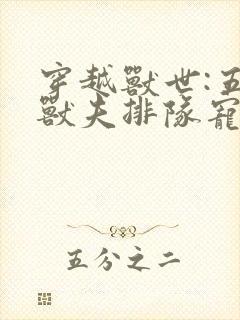 穿越獸世:五
獸夫排隊寵
五分之二